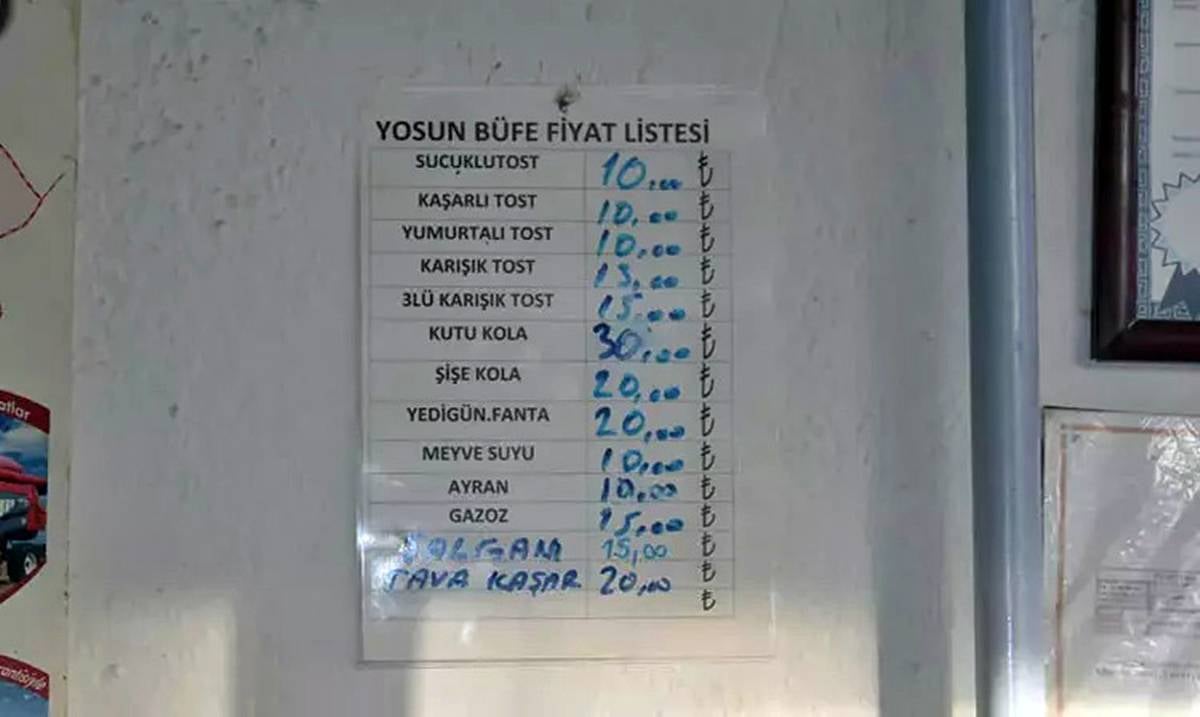 YOSUN BÜFE FİYAT LİSTESİ
SUCUKLUTOST 10.00 ₺
KAŞARLI TOST 10.00 ₺
YUMURTALI TOST 10.00 ₺
KARIŞIK TOST 15.00 ₺
3LÜ KARIŞIK TOST 15.00 ₺
KUTU KOLA 30.00 ₺
ŞİŞE KOLA 20,00 ₺
YEDİGÜN.FANTA 20,00 ₺
MEYVE SUYU 10,00 ₺
AYRAN 10,00 ₺
GAZOZ 15,00 ₺
ŞALGAM 15,00 ₺
TAVA KAŞAR 20,00 ₺
₺